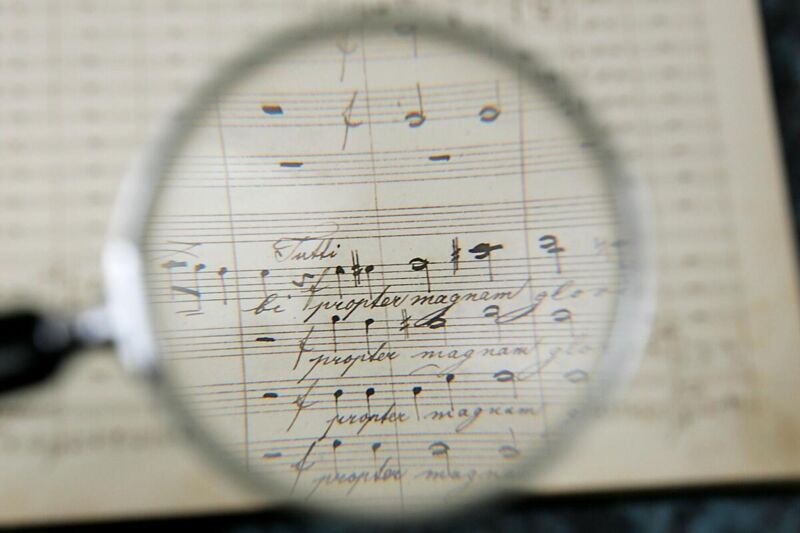 Tutti
bi propter magnam glo
propter magnam glo
propter magnam
propter magna